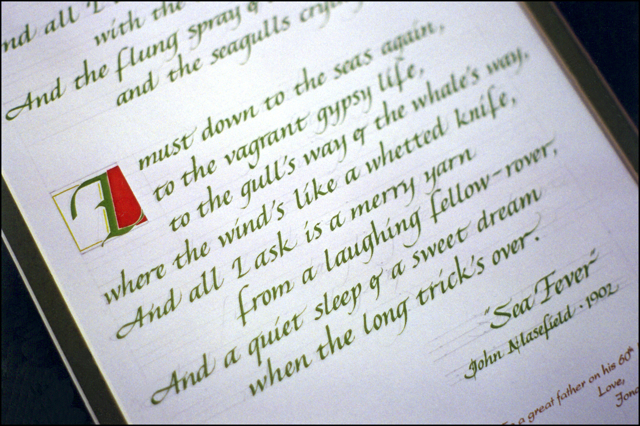 nd all I
with the
And the flung spray &
and the seagulls crying
I must down to the seas again,
to the vagrant gypsy life,
to the gull's way & the whale's way,
where the wind's like a whetted knife,
And all I ask is a merry yarn
from a laughing fellow-rover,
And a quiet sleep & a sweet dream
when the long trick's over.
"Sea Fever"
John Masefield - 1902
a great father on his 60th
Love,